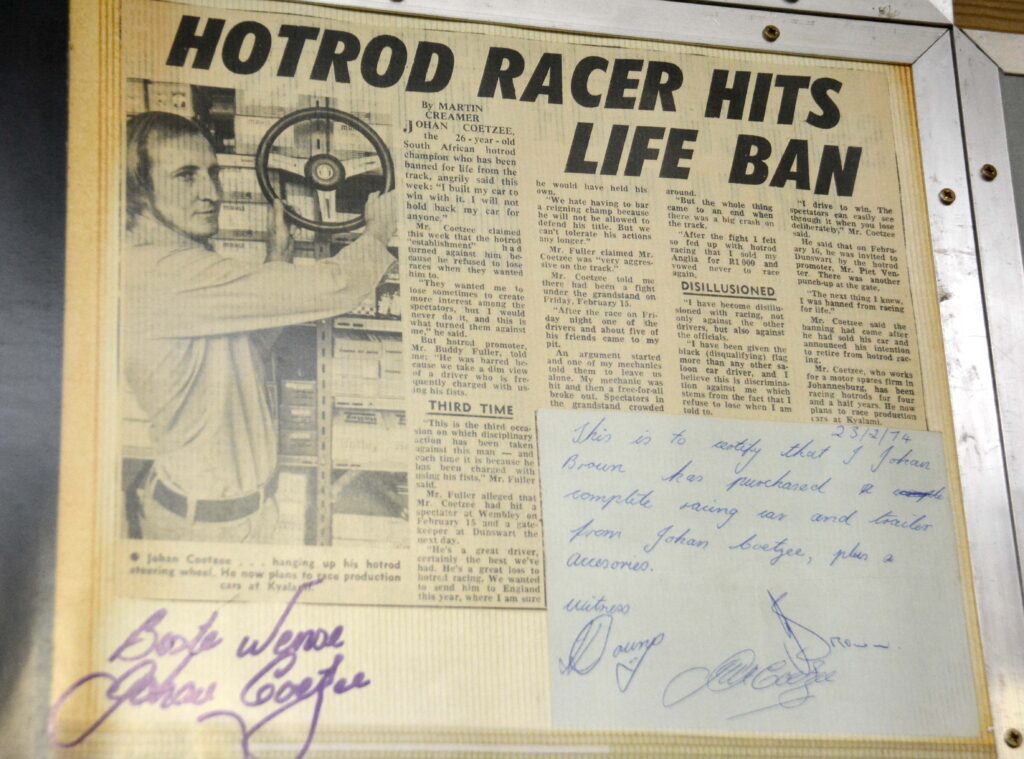 HOTROD RACER HITS
LIFE BAN
By MARTIN
CREAMER
JOHAN COETZEE,
the 26-year-old
South African hotrod
champion who has been
banned for life from the
track, angrily said this
week: "I built my car to
win with it. I will not
hold back my car for
anyone."
Mr. Coetzee claimed
this week that the hotrod
"establishment" had
turned against him be-
cause he refused to lose
races when they wanted
him to.
"They wanted me to
lose sometimes to create
more interest among the
spectators, but I would
never do it, and this is
what turned them against
me," he said.
But hotrod promoter,
Mr. Buddy Fuller, told
me: "He was barred be-
cause we take a dim view
of a driver who is fre-
quently charged with us-
ing his fists."
THIRD TIME
"This is the third occa-
sion on which disciplinary
action has been taken
against this man — and
each time it is because he
has been charged with
using his fists," Mr. Fuller
said.
Mr. Fuller alleged that
Mr. Coetzee had hit a
spectator at Wembley on
February 15 and a gate-
keeper at Dunswart the
next day.
"He's a great driver,
certainly the best we've
had. He's a great loss to
hotrod racing. We wanted
to send him to England
this year, where I am sure
he would have held his
own.
"We hate having to bar
a reigning champ because
he will not be allowed to
defend his title. But we
can't tolerate his actions
any longer."
Mr. Fuller claimed Mr.
Coetzee was "very aggres-
sive on the track."
Mr. Coetzee told me
there had been a fight
under the grandstand on
Friday, February 15.
"After the race on Fri-
day night one of the
drivers and about five of
his friends came to my
pit.
An argument started
and one of my mechanics
told them to leave us
alone. My mechanic was
hit and then a free-for-all
broke out. Spectators in
the grandstand crowded
around.
"But the whole thing
came to an end when
there was a big crash on
the track.
"After the fight I felt
so fed up with hotrod
racing that I sold my
Anglia for R1 000 and
vowed never to race
again.
DISILLUSIONED
"I have become disillu-
sioned with racing, not
only against the other
drivers, but also against
the officials.
"I have been given the
black (disqualifying) flag
more than any other sa-
loon car driver, and I
believe this is discrimina-
tion against me which
stems from the fact that I
refuse to lose when I am
told to.
"I drive to win. The
spectators can easily see
through it when you lose
deliberately," Mr. Coetzee
said.
He said that on Febru-
ary 16, he was invited to
Dunswart by the hotrod
promoter, Mr. Piet Ven-
ter. There was another
punch-up at the gate.
"The next thing I knew,
I was banned from racing
for life."
Mr. Coetzee said the
banning had come after
he had sold his car and
announced his intention
to retire from hotrod rac-
ing.
Mr. Coetzee, who works
for a motor spares firm in
Johannesburg, has been
racing hotrods for four
and a half years. He now
plans to race production
cars at Kyalami.
Johan Coetzee . . . hanging up his hotrod
steering wheel. He now plans to race production
cars at Kyalami.
Beste Wense
Johan Coetzee
23/2/74
This is to certify that I Johan
Brown has purchased a
complete racing car and trailer
from Johan Coetzee, plus a
accesories.
witness
Brown
Coetzee